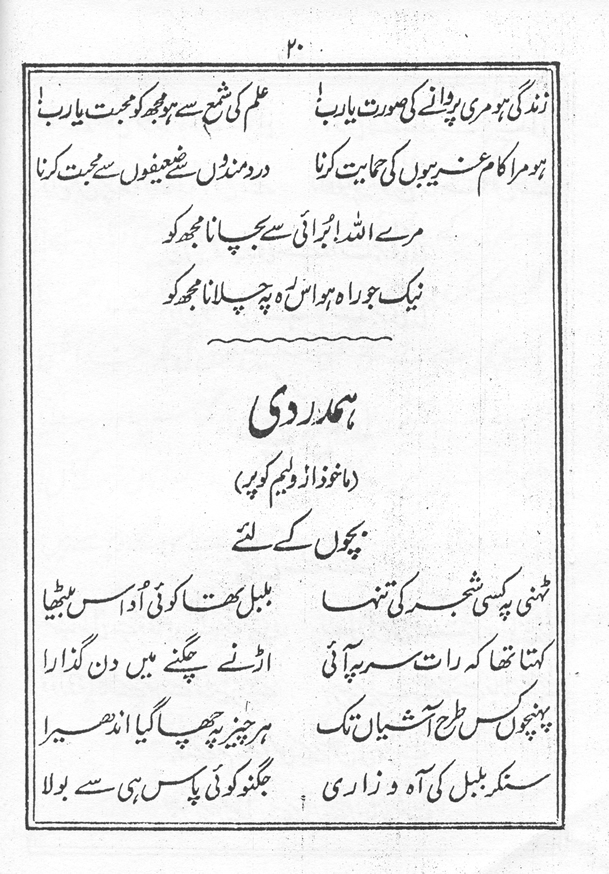 ۲۰
زندگی ہو مری پروانے کی صورت یارب! علم کی شمع سے ہو مجھ کو محبت یارب!
ہو مرا کام غریبوں کی حمایت کرنا دردمندوں سے ضعیفوں سے محبت کرنا
مرے اللہ! بُرائی سے بچانا مجھ کو
نیک جو راہ ہو اس رہ پہ چلانا مجھ کو
ہمدردی
(ماخوذ از ولیم کوپر)
بچوں کے لئے
ٹہنی پہ کسی شجر کی تنہا بلبل تھا کوئی اُداس بیٹھا
کہتا تھا کہ رات سر پہ آئی اڑنے چگنے میں دن گذارا
پہنچوں کس طرح آشیاں تک ہر چیز پہ چھا گیا اندھیرا
سنکر بلبل کی آہ و زاری جگنو کوئی پاس ہی سے بولا